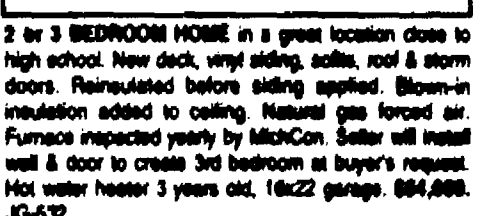 2 or 3 BEDROOM HOME in a great location close to
high school. New deck, vinyl siding, sofits, roof & storm
doors. Reinsulated before siding applied. Blown-in
insulation added to ceiling. Natural gas forced air.
Furnace inspected yearly by MichCon. Seller will install
wall & door to create 3rd bedroom at buyer's request.
Hot water heater 3 years old, 16x22 garage.
JG-632